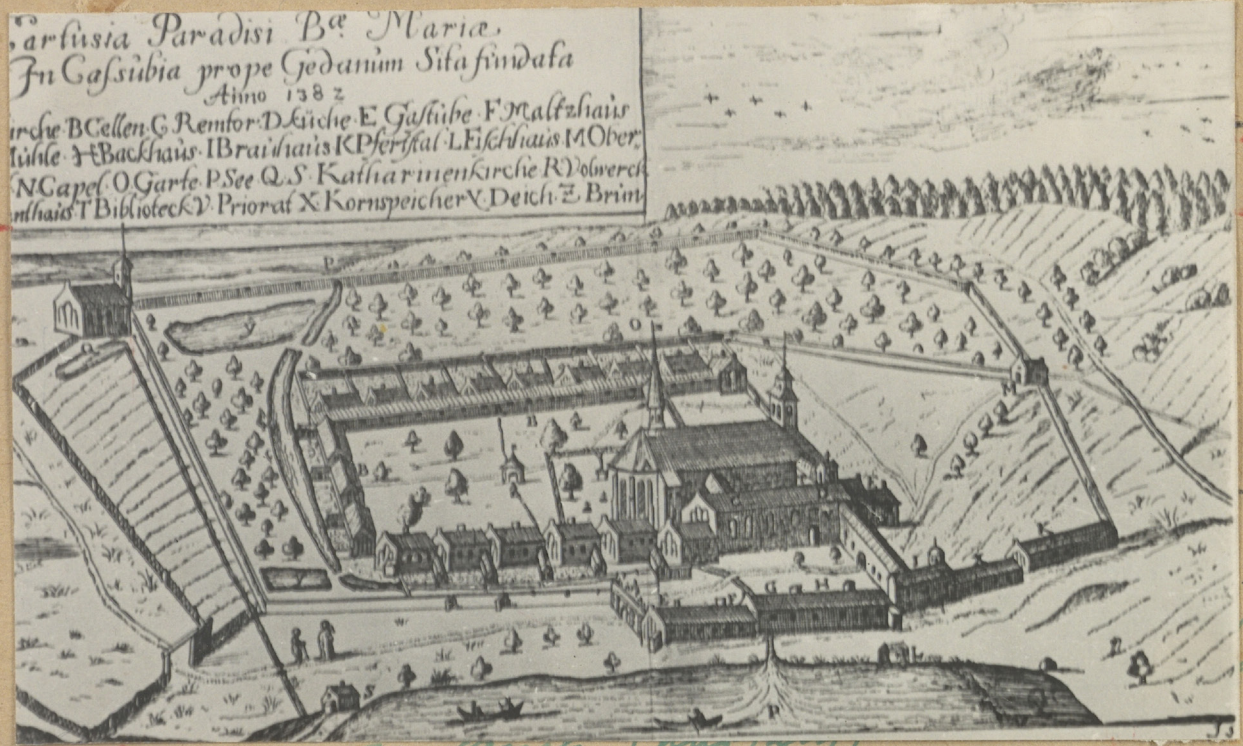 Cartusia Paradisi Bæ Mariæ
In Cassubia prope Gedanum Sita fundata
Anno 1382
irche B Cellen. C. Remtor. D. Kuche. E Gastube. F Maltzhaus
Mühle. H Backhaus. I Brauhaus K Pferstal. L Fischhaus. M Ober
N Capel. O Garte. P. See Q. S. Katharinenkirche R Volwerck
nthaus. T Biblioteck V. Priorat X Kornspeicher Y. Deich. Z Brun
P
Q
O
B
B
A
K
G H
E
F
L
S
P